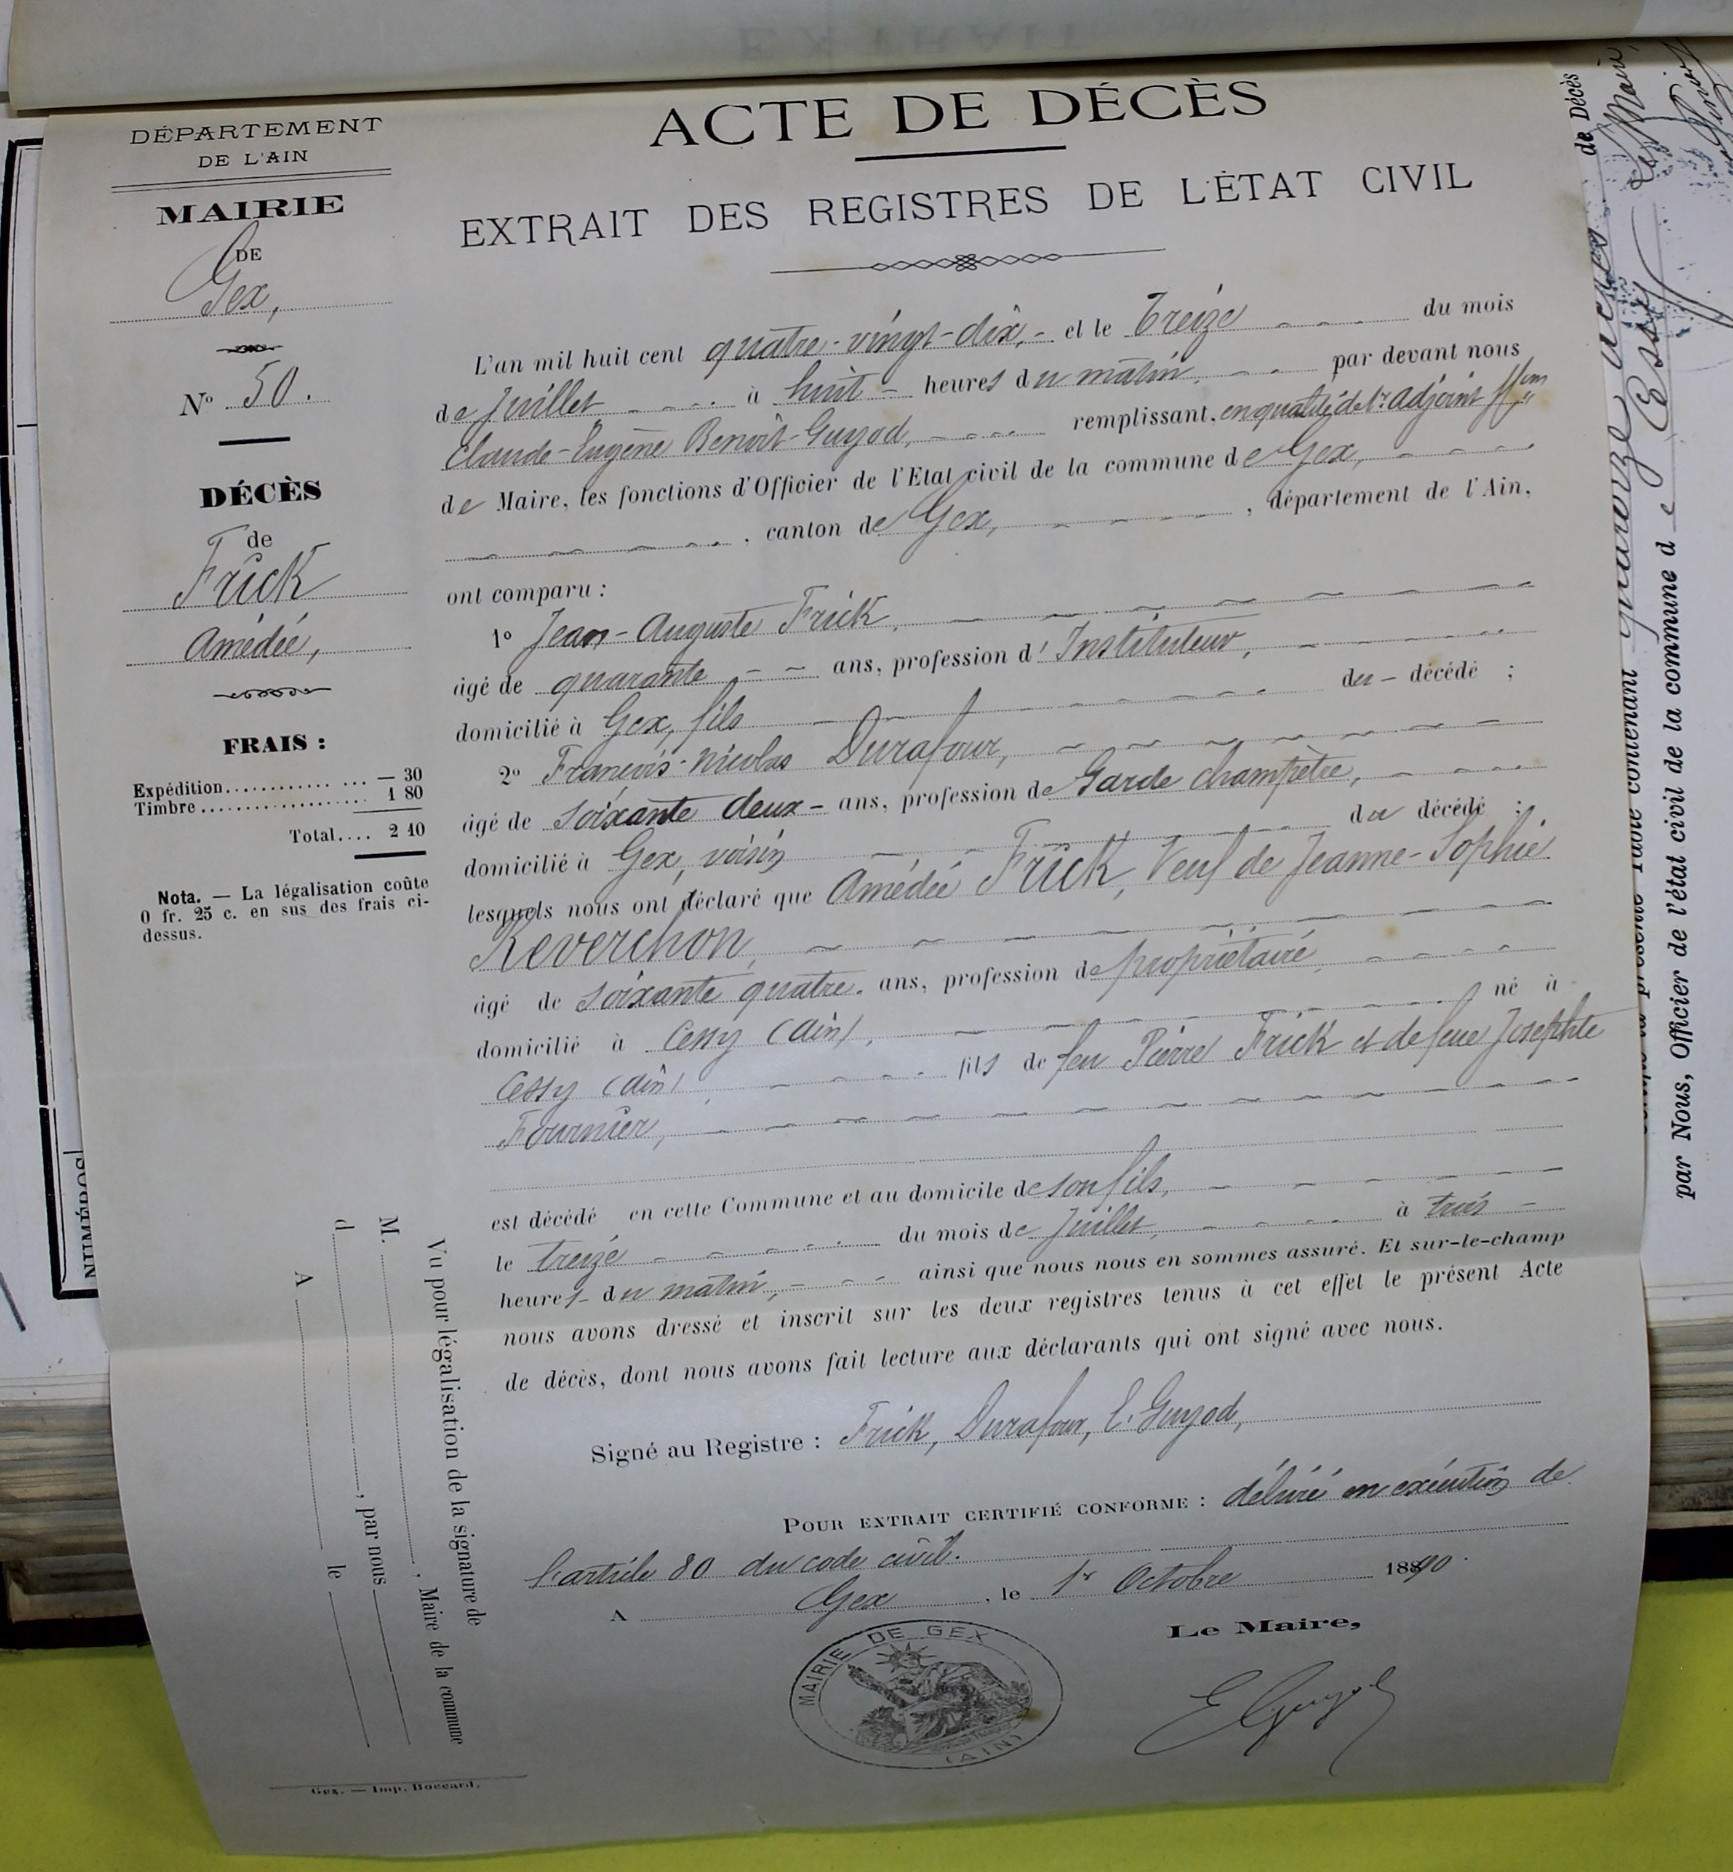 DÉPARTEMENT
DE L'AIN
MAIRIE
DE
Gex,
N° 50.
DÉCÈS
de
Frick
Amédée,
FRAIS :
Expédition............ ... — 30
Timbre................... 1 80
Total.... 2 10
Nota. — La légalisation coûte
0 fr. 25 c. en sus des frais ci-
dessus.
ACTE DE DÉCÈS
EXTRAIT DES REGISTRES DE L'ÉTAT CIVIL
L'an mil huit cent quatre-vingt-dix, - et le Treize - - - du mois
de Juillet - - - - à huit - heures du matin. - - par devant nous
Claude-Eugène Benoît-Guyod, - - - - remplissant, en qualité de 1er adjoint ffons
de Maire, les fonctions d'Officier de l'Etat civil de la commune de Gex, - - - -
- - - - - . , canton de Gex, - - - - - , département de l'Ain,
ont comparu :
1° Jean-Auguste Frick, - - - - - - -
âgé de quarante - - ans, profession d'Instituteur, - - - - -
domicilié à Gex, fils - - - - - - - du - décédé ;
2° François-Nicolas Durafour, - - - - - - -
âgé de soixante deux - ans, profession de Garde champêtre, - - - -
domicilié à Gex, voisin - - - - - - du décédé ;
lesquels nous ont déclaré que Amédée Frick, Veuf de Jeanne-Sophie
Reverchon, - - - - - - - - -
âgé de soixante quatre. ans, profession de propriétaire, - - - -
domicilié à Cessy (Ain), - - - - - - né à
Cessy (Ain), - - - - - fils de feu Pierre Frick et de feue Josephte
Fournier, - - - - - - - - - -
est décédé en cette Commune et au domicile de son fils, - - - - -
le treize - - - - - - du mois de Juillet, - - - - à trois -
heures - du matin, - - - ainsi que nous nous en sommes assuré. Et sur-le-champ
nous avons dressé et inscrit sur les deux registres tenus à cet effet le présent Acte
de décès, dont nous avons fait lecture aux déclarants qui ont signé avec nous.
Signé au Registre : Frick, Durafour, E. Guyod,
POUR EXTRAIT CERTIFIÉ CONFORME : délivré en exécution de
l'article 80 du code civil.
A Gex , le 1er Octobre 1890.
Le Maire,
E Guyod
MAIRIE DE GEX
(AIN)
Vu pour légalisation de la signature de
M. , Maire de la commune
d , par nous
A le
Gex. — Imp. Boccard.
NUMÉROS
de Décès
le Maire,
présente Table contenant quatorze actes
par Nous, Officier de l'état civil de la commune de Cessy